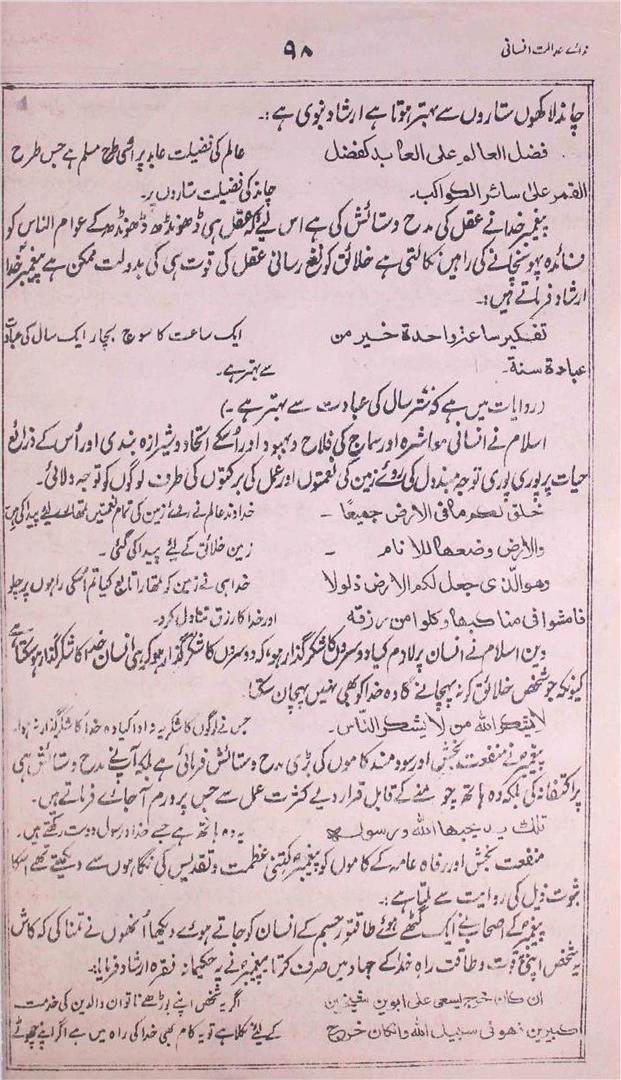 ندائے عدالت انسانی ۹۸
چاند لاکھوں ستاروں سے بہتر ہوتا ہے ارشاد نبوی ہے :۔
فضل العالم علی العابد کفضل عالم کی فضیلت عابد پر اسی طرح مسلم ہے جس طرح
القمر علیٰ سائر الکواکب۔ چاند کی فضیلت ستاروں پر۔
پیغمبر خدا نے عقل کی مدح و ستائش کی ہے اس لیے کہ عقل ہی ڈھونڈھ ڈھونڈھ کے عوام الناس کو
فائدہ پہونچانے کی راہیں نکالتی ہے خلائق کو نفع رسانی عقل کی قوت ہی کی بدولت ممکن ہے پیغمبر خدا
ارشاد فرماتے ہیں :۔
تفکیر ساعۃ واحدۃ خیر من ایک ساعت کا سوچ بچار ایک سال کی عبادت
عبادۃ سنۃ۔ سے بہتر ہے۔
(روایات میں ہے کہ ستر سال کی عبادت سے بہتر ہے۔)
اسلام نے انسانی معاشرہ اور سماج کی فلاح و بہبود اور اسکے اتحاد و شیرازہ بندی اور اُس کے ذرائع
حیات پر پوری پوری توجہ مبذول کی روئے زمین کی نعمتوں اور عمل کی برکتوں کی طرف لوگوں کو توجہ دلائی۔
خلق لکم ما فی الارض جمیعًا۔ خداوند عالم نے روئے زمین کی تمام نعمتیں تمھارے لیے پیدا کی ہیں
والارض وضعھا للانام ۔ زمین خلائق کے لیے پیدا کی گئی۔
وھو الذی جعل لکم الارض ذلولا خدا ہی نے زمین کو تمھارا تابع کیا تم اسکی راہوں پر چلو
فامشوا فی مناکبھا وکلوا من رزقہ اور خدا کا رزق تناول کرو۔
دین اسلام نے انسان پر لازم کیا دوسروں کا شکر گذار ہو کہ دوسروں کا شکر گذار ہو کر ہی انسان خدا کا شکر گذار ہو سکتا ہے
کیونکہ جو شخص خلائق کو نہ پہچانے گا وہ خدا کو بھی نہیں پہچان سکتا۔
لا یشکر اللہ من لا یشکر الناس۔ جس نے لوگوں کا شکریہ نہ ادا کیا وہ خدا کا شکر گذار نہ ہوا۔
پیغمبر نے منفعت بخش اور سود مند کاموں کی بڑی مدح و ستائش فرمائی ہے بلکہ آپ نے مدح و ستائش ہی
پر اکتفا نہ کی بلکہ وہ ہاتھ چومنے کے قابل قرار دیے کثرت عمل سے جس پر ورم آجائے فرماتے ہیں۔
تلک ید یحبھا اللہ ورسولہ یہ وہ ہاتھ ہے جسے خدا و رسول دوست رکھتے ہیں۔
منفعت بخش اور رفاہ عامہ کے کاموں کو پیغمبر کتنی عظمت و تقدیس کی نگاہوں سے دیکھتے تھے اسکا
ثبوت ذیل کی روایت سے ملتا ہے :۔
پیغمبر کے اصحاب نے ایک گٹھے ہوئے طاقتور جسم کے انسان کو جاتے ہوئے دیکھا اُنھوں نے تمنا کی کہ کاش
یہ شخص اپنی قوت و طاقت راہ خدا کے جہاد میں صرف کرتا پیغمبر نے یہ حکیمانہ فقرہ ارشاد فرمایا :۔
ان کان خرج یسعی علی ابوین شیخین اگر یہ شخص اپنے بوڑھے ناتوان والدین کی خدمت
کبیرین فھو فی سبیل اللہ وانکان خرج کے لیے نکلا ہے تو یہ کام بھی خدا کی راہ میں ہے اگر اپنے چھوٹے